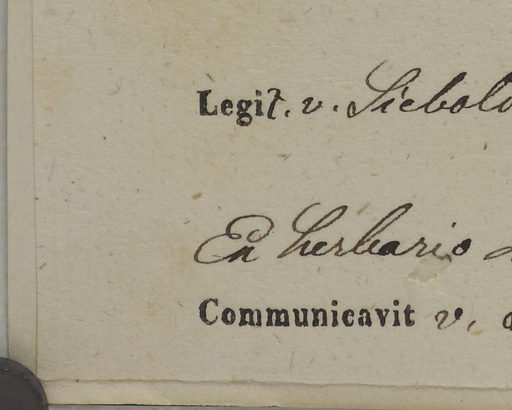 Legit. v. Siebold
Ex herbario
Communicavit v.